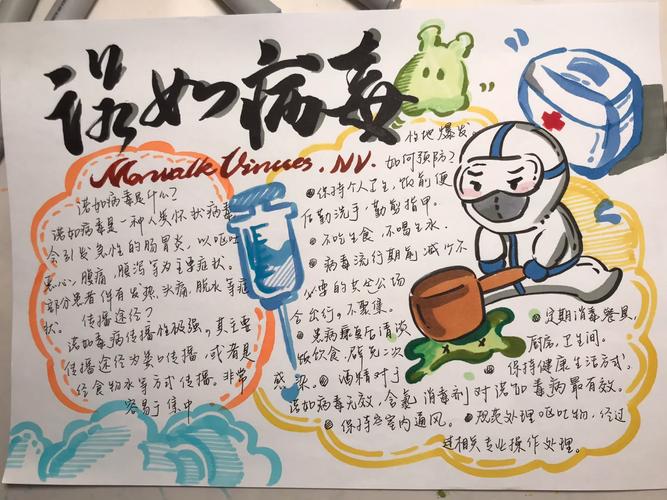 诺如病毒
Morwalk Viruses. NV.
诺如病毒是什么?
诺如病毒是一种人类杯状病毒
会引发急性的肠胃炎，以呕吐
恶心，腹痛，腹泻等为主要症状。
部分患者伴有发热，头痛，脱水等症
状。
传播途径?
诺如病毒传播性极强。其主要
传播途径为粪口传播，或者是
经食物水等方式传播。非常
容易于集中
性地爆发
如何预防?
保持个人卫生，饭前便
后勤洗手，勤剪指甲。
不吃生食，不喝生水。
病毒流行期间，减少不
必要的去公共场
合出行。不聚集。
患病康复后清淡
饭饮食，避免二次
感染。
酒精对于
诺如病毒无效，含氯消毒剂对诺如毒病最有效。
保持室内通风。
定期消毒餐具，
厨房，卫生间。
保持健康生活方式。
规范处理呕吐物，经过
过相关专业操作处理。